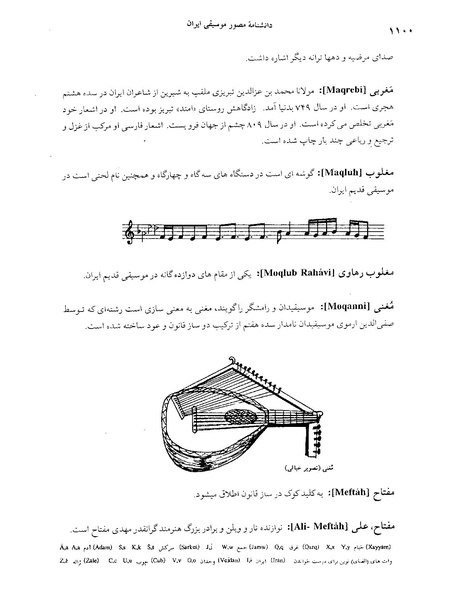 دانشنامهٔ مصور موسیقی ایران
۱۱۰۰
صدای مرضیه و دهها ترانه دیگر اشاره داشت.
مَغربی [Maqrebi]: مولانا محمد بن عزالدین تبریزی ملقب به شیرین از شاعران ایران در سده هشتم
هجری است. او در سال ۷۴۹ بدنیا آمد. زادگاهش روستای «امند» تبریز بوده است. او در اشعار خود
مَغربی تخلص می کرده است. او در سال ۸۰۹ چشم از جهان فرو بست. اشعار فارسی او مرکب از غزل و
ترجیع و رباعی چند بار چاپ شده است.
مغلوب [Maqluh]: گوشه ای است در دستگاه های سه گاه و چهارگاه و همچنین نام لحنی است در
موسیقی قدیم ایران.
مغلوب رهاوی [Moqlub Rahávi]: یکی از مقام های دوازده گانه در موسیقی قدیم ایران.
مُغنی [Moqanni]: موسیقیدان و رامشگر را گویند، مغنی به معنی سازی است رشته‌ای که توسط
صفی‌الدین ارموی موسیقیدان نامدار سده هفتم از ترکیب دو ساز قانون و عود ساخته شده است.
مُغنی (تصویر خیالی)
مفتاح [Meftáh]: به کلید کوک در ساز قانون اطلاق میشود.
مفتاح، علی [Ali- Meftáh]: نوازنده تار و ویلن و برادر بزرگ هنرمند گرانقدر مهدی مفتاح است.